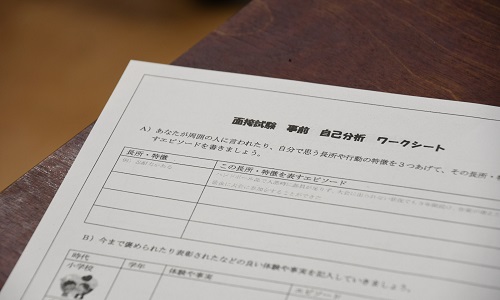 面接試験 事前 自己分析 ワークシート
A）あなたが周囲の人に言われたり、自分で思う長所や行動の特徴を３つあげて、その長所・
すエピソードを書きましょう。
長所・特徴 この長所・特徴を表すエピソード
B）今まで褒められたり表彰されたなどの良い体験や事実を記入していきましょう。
時代 学年 体験や事実 エピソード
小学校